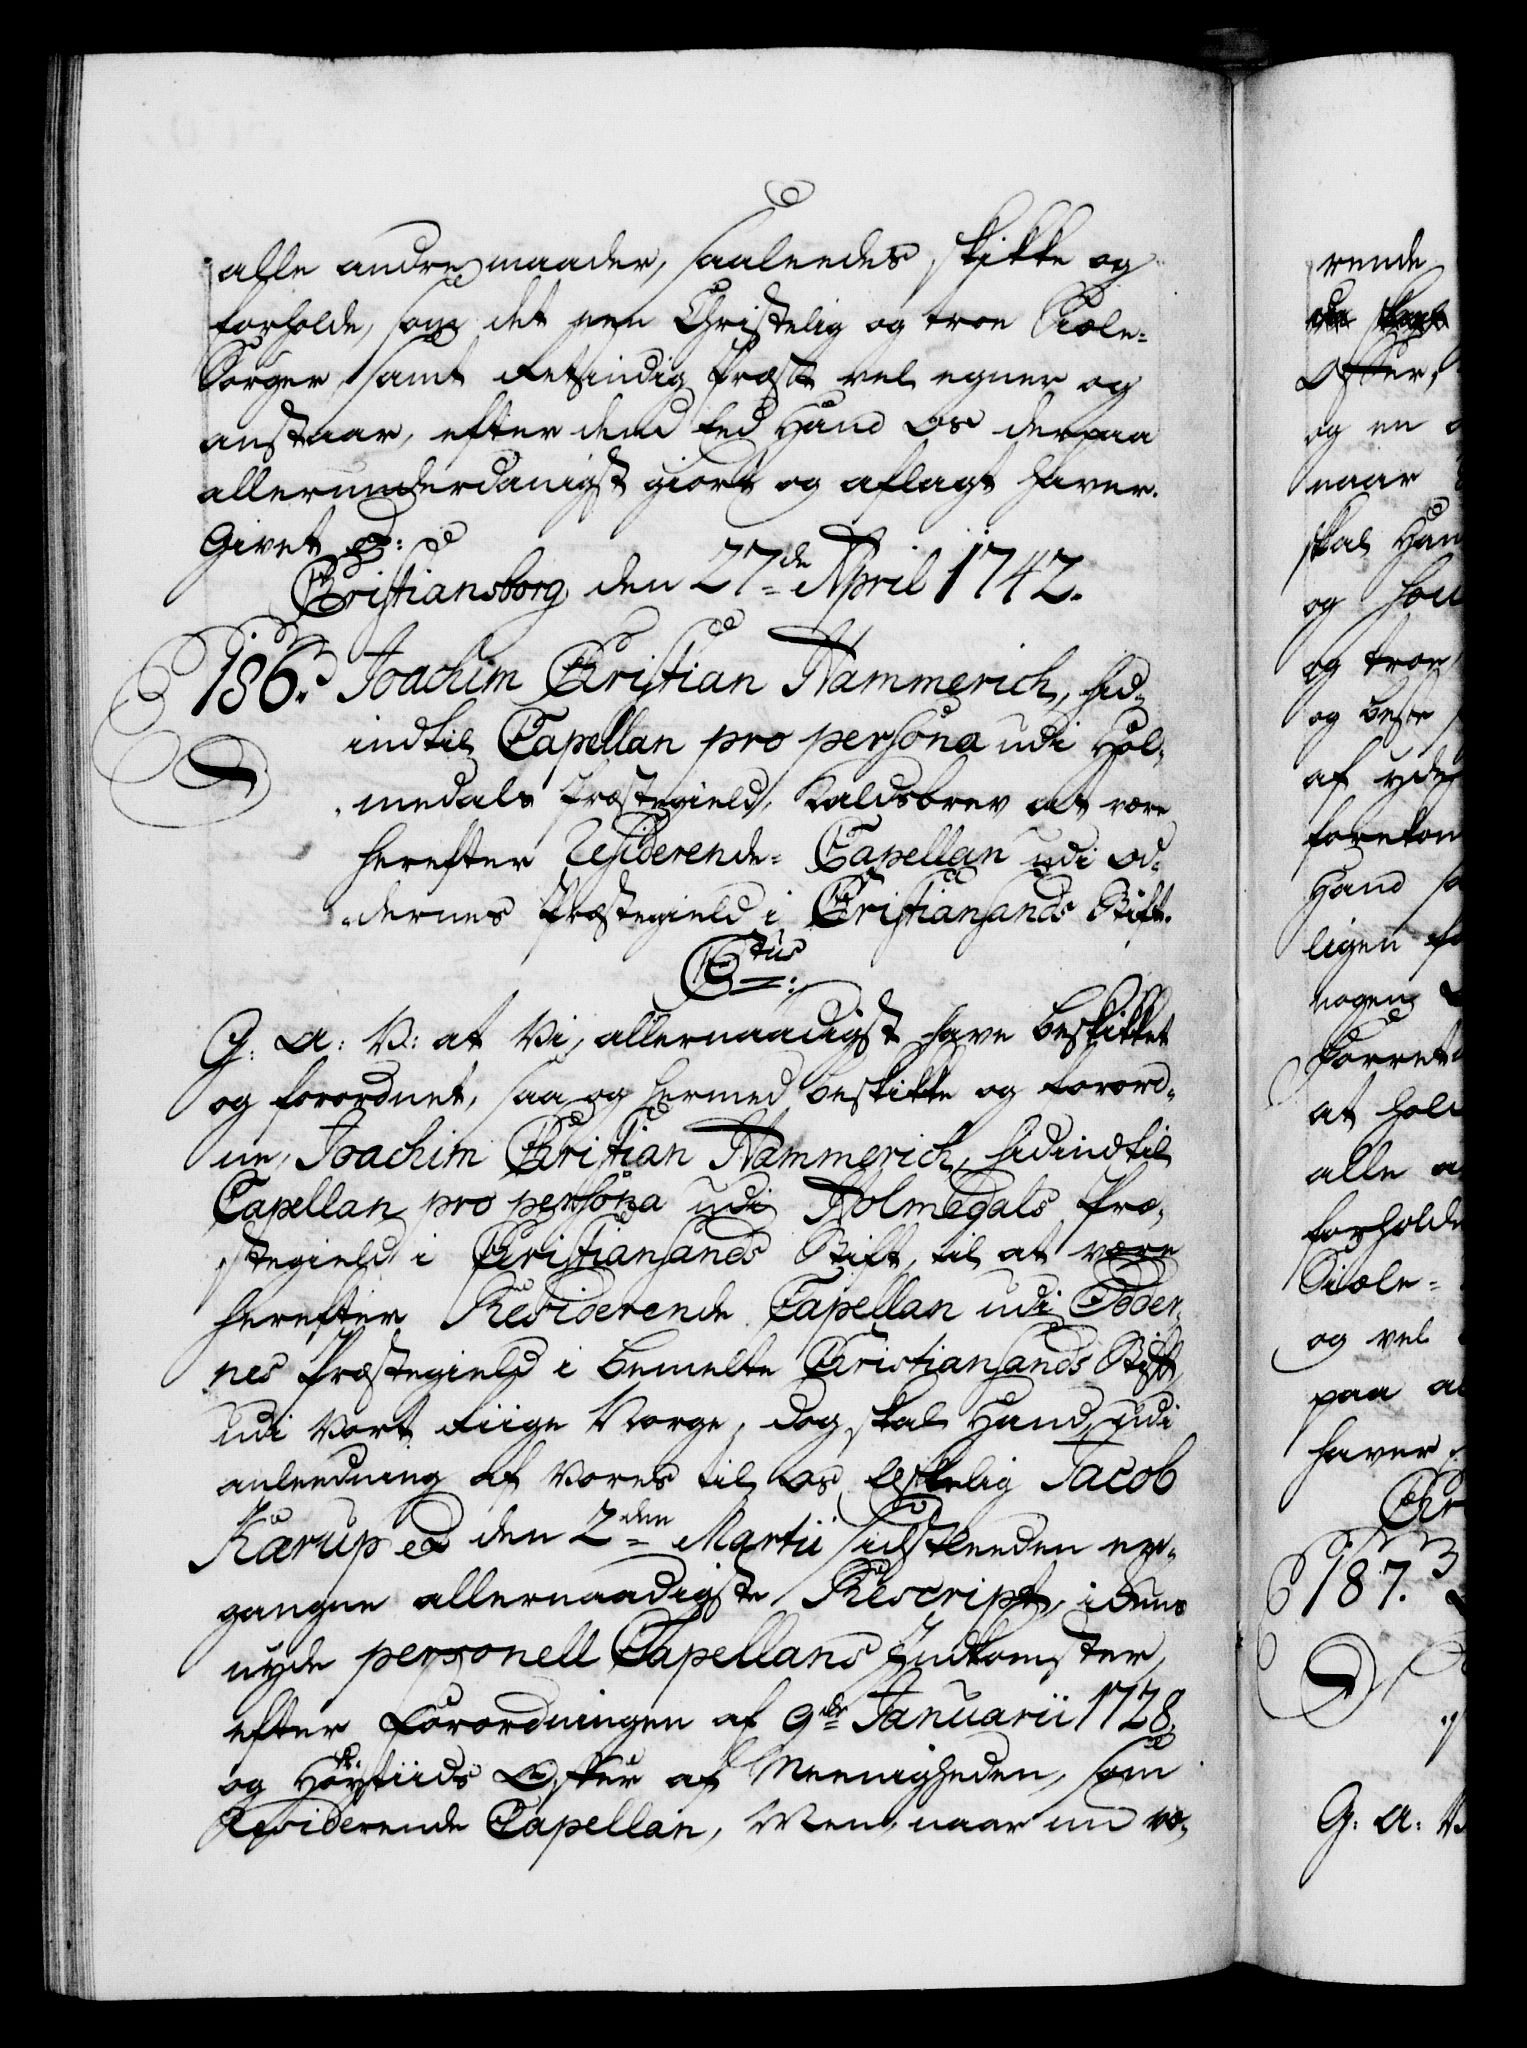 alle andre maader, saaleedes skikke og
forholde, som det een Christelig og troe Siæle-
Sørger samt Retsindig Præst vel egner og
anstaar, efter dend Eed Hand os derpaa
allerunderdanigst giort og aflagt haver.
Givet p:
Christiansborg den 27de April 1742.
186. Joachim Christian Hammerich, hid-
indtil Capellan pro persona udi Hol-
medals Præstegield, Kaldsbrev at være
herefter Residerende- Capellan udi Od-
dernes Præstegield i Christiansands Stift.
Ctus:
G: A: V: at Vi, allernaadigst have beskikket
og forordnet, saa og hermed beskikke og forord-
ne, Joachim Christian Hammerich, hidindtil
Capellan pro persona udi Holmedals Præ-
stegield i Christiansands Stift, til at være
herefter Residerende Capellan udi Odder-
nes Præstegield i bemelte Christiansands Stift
udi Vort Riige Norge, dog skal Hand, udi
anleedning af Vores til os Elskelig Jacob
Kærup den 2den Martii sidstleeden er-
gangne allernaadigste Rescript, ikkuns
nyde personell Capellans Indkomster,
efter Forordningen af 9de Januarii 1728.
og Høytiids Offer af Meenigheden, som
Residerende Capellan, Men, naar nu væ-
rende
Offer,
og en
naar
skal Han
og
og troe
og beste
af yde
forekom
Hand sa
ligen
nogen
Forret
at hol
alle a
forholde
Siæle-
og vel
paa a
haver
Chr
187.
G: A: V